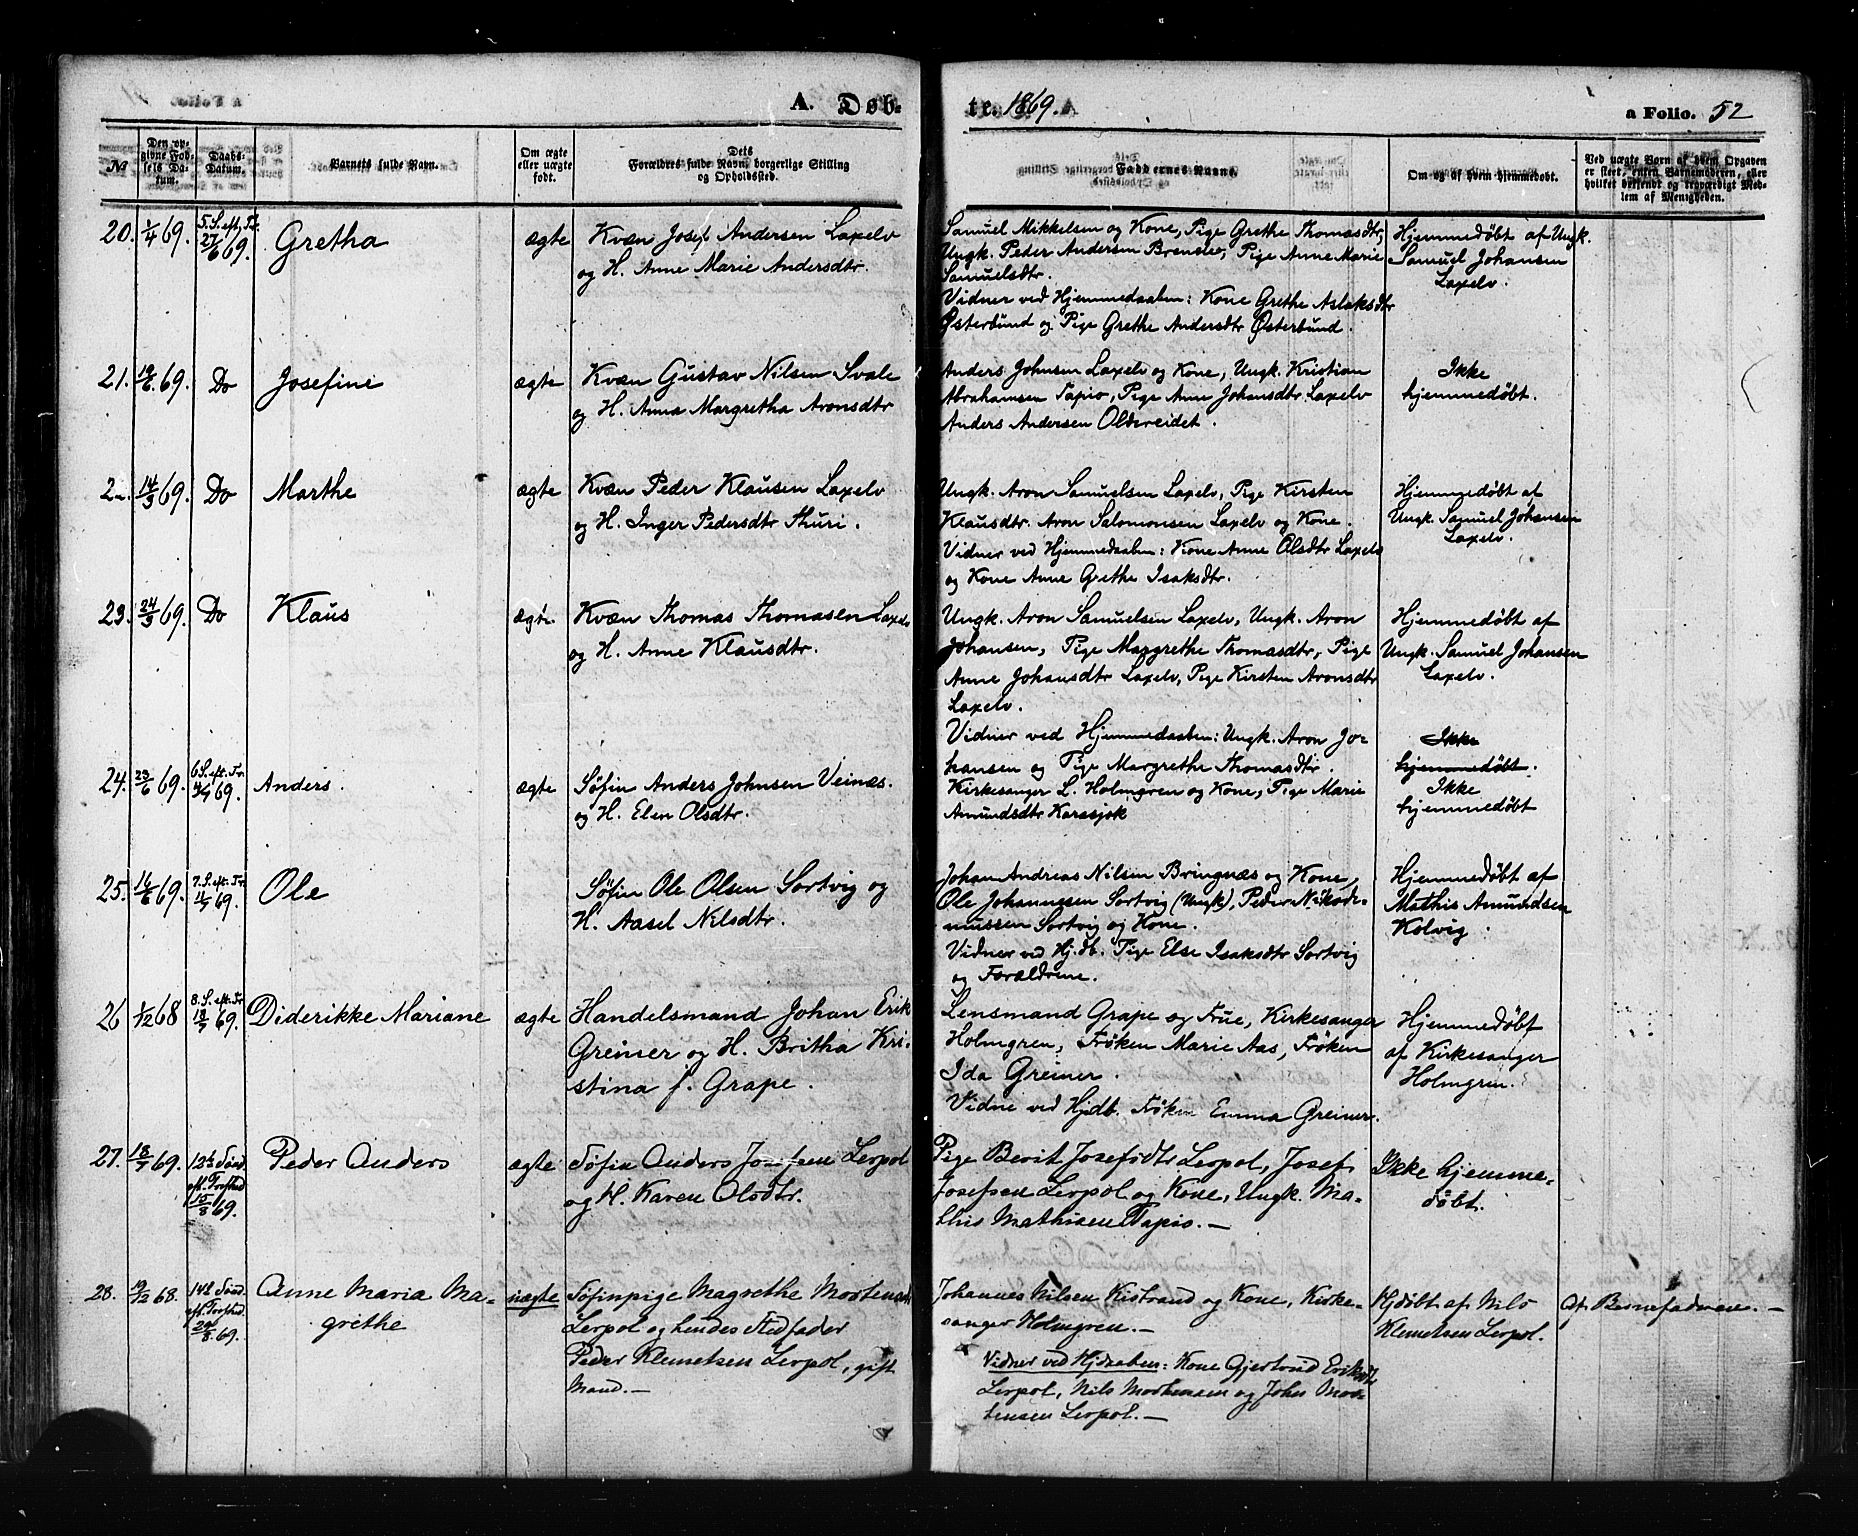 A. Døb-
te. 1869.
a Folio. 52
No
Den opgivne Fødsels Datum.
Daabs-Datum.
Barnets fulde Navn.
Om ægte eller uægte født.
Forældres fulde Navn, borgerlige Stilling og Opholdssted.
Faddernes Navne.
Om og af hvem hjemmedøbt.
Ved uægte Børn af hvem Opgaven er skeet, enten Barnemoderen, eller hvilket bekjendt og troværdigt Medlem af Menigheden.
20. 1/4 69. 5. S. eft. Tr. 27/6 69. Gretha
ægte
Kvæn Josef Andersen Laxelv
og H. Anne Marie Andersdtr.
Samuel Mikkelsen og Kone, Pige Grethe Thomasdtr,
Ungk. Peder Andersen Brenelv, Pige Anne Marie
Samuelsdtr.
Vidner ved Hjemmedaaben: Kone Grethe Aslaksdtr
Østerbund og Pige Grethe Andersdtr Østerbund.
Hjemmedøbt af Ungk.
Samuel Johansen
Laxelv.
21. 19/6 69. Do Josefine
ægte
Kvæn Gustav Nilsen Svale
og H. Anna Margretha Aronsdtr
Anders Johnsen Laxelv og Kone, Ungk. Kristian
Abrahamsen Tapio, Pige Ane Johansdtr Laxelv
Anders Andersen Oldereidet.
Ikke
hjemmedøbt.
22. 14/3 69. Do Marthe
ægte
Kvæn Peder Klausen Laxelv
og H. Inger Pedersdtr Thuri.
Ungk. Aron Samuelsen Laxelv, Pige Kirsten
Klausdtr. Aron Salomonsen Laxelv og Kone.
Vidner ved Hjemmedaaben: Kone Anne Olsdtr Laxelv
og Kone Anne Grethe Isaksdtr.
Hjemmedøbt af
Ungk. Samuel Johansen
Laxelv.
23. 24/3 69. Do Klaus
ægte.
Kvæn Thomas Thomasen Laxelv
og H. Anne Klausdtr.
Ungk. Aron Samuelsen Laxelv, Ungk. Aron
Johansen, Pige Margrethe Thomasdtr, Pige
Anne Johansdtr Laxelv, Pige Kirsten Aronsdtr
Laxelv.
Vidner ved Hjemmedaaben: Ungk. Aron Jo-
hansen og Pige Margrethe Thomasdtr.
Hjemmedøbt af
Ungk. Samuel Johansen
Laxelv.
Ikke
hjemmedøbt.
24. 23/6 69. 6 S. eft. Tr. 4/7 69. Anders.
ægte
Søfin Anders Johnsen Veinæs.
og H. Elen Olsdtr.
Kirkesanger L. Holmgren og Kone, Pige Marie
Amundsdtr Karasjok
Ikke
hjemmedøbt
25. 16/6 69. 7. S. eft. Tr. 11/7 69. Ole
Søfin Ole Olsen Sortvig og
H. Aasel Nilsdtr.
Johan Andreas Nilsen Bringnæs og Kone,
Ole Johannesen Sortvig (Ungk), Peder Nikode-
mussen Sortvig og Kone.
Vidner ved Hj.db. Pige Else Isaksdtr Sortvig
og Forældrene.
Hjemmedøbt af
Mathis Amundsen
Kolvig.
26 1/12 68 8. S. eft. Tr. 18/7 69. Diderikke Mariane
ægte
Handelsmand Johan Erik
Greiner og H. Britha Kri-
stina f. Grape.
Lensmand Grape og Frue, Kirkesanger
Holmgren, Frøken Marie Aas, Frøken
Ida Greiner.
Vidne ved Hjdb. Frøken Emma Greiner.
Hjemmedøbt
af Kirkesanger
Holmgren.
27. 18/7 69. 12te Sønd. eft. Trefold. 15/8 69. Peder Anders
ægte
Søfin Anders Josefsen Lerpol
og H. Karen Olsdtr.
Pige Berit Josefsdtr Lerpol, Josef
Josefsen Lerpol og Kone, Ungk. Ma-
this Mathisen Tapio. —
Ikke hjemme-
døbt.
28. 19/12 68. 14de Sønd. eft. Trefold. 29/8 69. Anne Maria Ma-
grethe
uægte
Søfinpige Magrethe Mortensdtr
Lerpol og hendes Stedfader
Peder Klemetsen Lerpol, gift
Mand. —
Johannes Nilsen Kistrand og Kone, Kirke-
sanger Holmgren. —
Vidner ved Hjdaaben: Kone Gjertrud Eriksdtr
Lerpol, Nils Mortensen og John Mor-
tensen Lerpol. —
Hjdøbt af Nils
Klemetsen Lerpol.
Af Barnefaderen. —